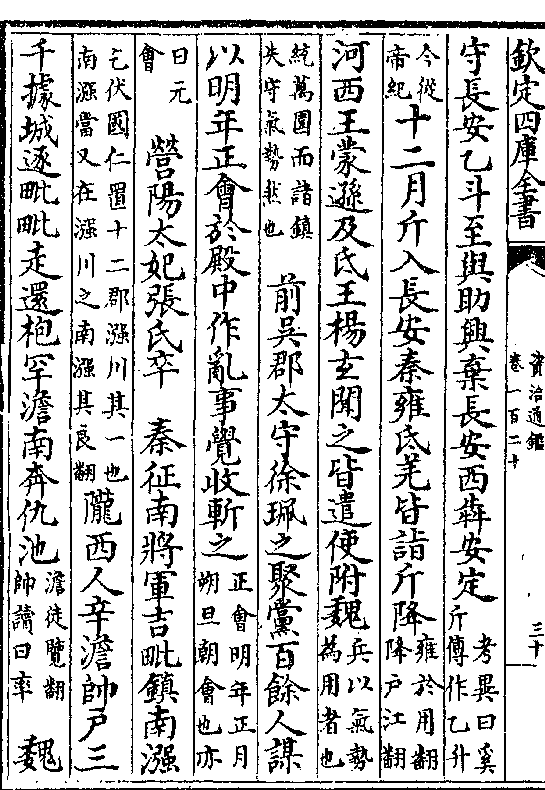 欽定四庫全書
資治通鑑
卷一百二十
三十
守長安乙斗至與助興棄長安西犇安定考異曰奚斤傳作乙升
今從帝紀十二月斤入長安秦雍氐羌皆詣斤降雍於用翻降戶江翻
河西王蒙遜及氐王楊玄聞之皆遣使附魏兵以氣勢為用者也
統萬圍而諸鎮失守氣勢然也前吳郡太守徐珮之聚黨百餘人謀
以明年正會於殿中作亂事覺收斬之正會明年正月朔旦朝會也亦
曰元會營陽太妃張氏卒秦征南將軍吉毗鎮南漒
乞伏國仁置十二郡漒川其一也南漒當又在漒川之南漒其良翻隴西人辛澹帥戶三
千據城逐毗毗走還枹罕澹南奔仇池澹徒覽翻帥讀曰率魏